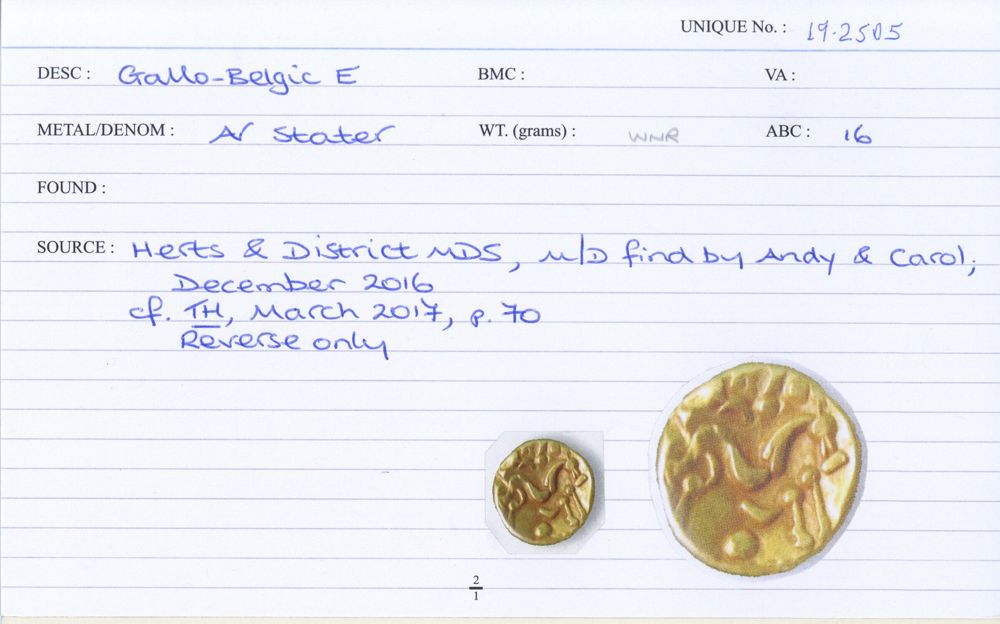 UNIQUE No. : 19.2505
DESC : Gallo-Belgic E BMC : VA :
METAL/DENOM : AV Stater WT. (grams) : WNR ABC : 16
FOUND :
SOURCE : Herts & District MDS, M/D find by Andy & Carol;
December 2016
cf. TH, March 2017, p. 70
Reverse only
2
1